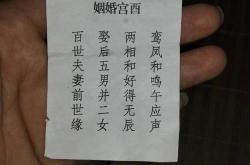 姻婚宫西
鸾凤和鸣午应声
两相和好得无辰
娶后五男并二女
百世夫妻前世缘